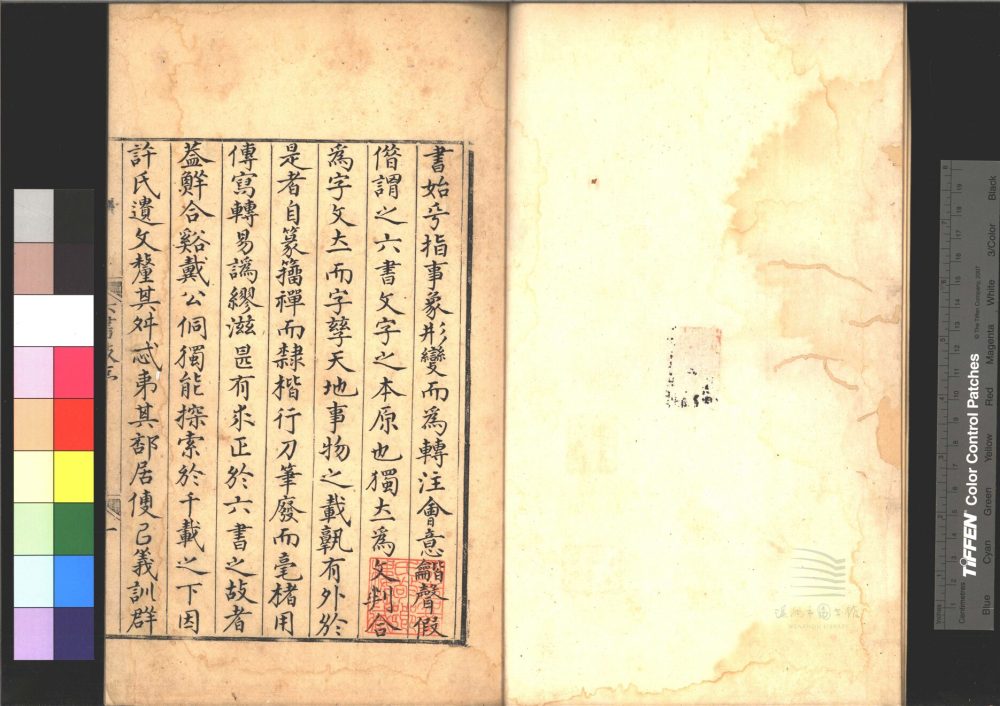 書始乎指事象形變而為轉注會意龤聲假
偕謂之六書文字之本原也獨立為文判合
為字文立而字孳天地事物之載孰有外於
是者自篆籀禪而隸楷行刀筆廢而毫楮用
傳寫轉易譌繆滋甚有求正於六書之故者
葢鮮合谿戴公侗獨能探索於千載之下因
許氏遺文釐其舛忒弟其部居傅㠯義訓群
溫州市圖書館
WENZHOU LIBRARY
TIFFEN Color Control Patches
© The Tiffen Company, 2007
Centimetres
Blue Cyan Green Yellow Red Magenta White 3/Color Black